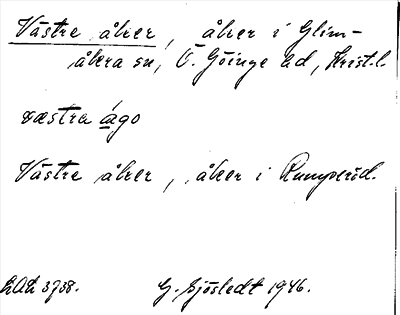 Västre åker, åker i Glim-
åkra sn, Ö. Göinge hd, Krist.l.
væstra ágo
Västre åker, åker i Rumperöd.
LAL 3738.
G. Sjöstedt 1946.